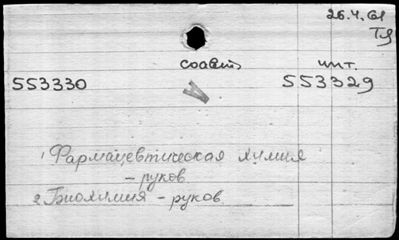 26.4.61
Тя
соавт. инт.
553330 553329
А
1 Фармацевтическая химия
- руков
2. Биохимия - руков